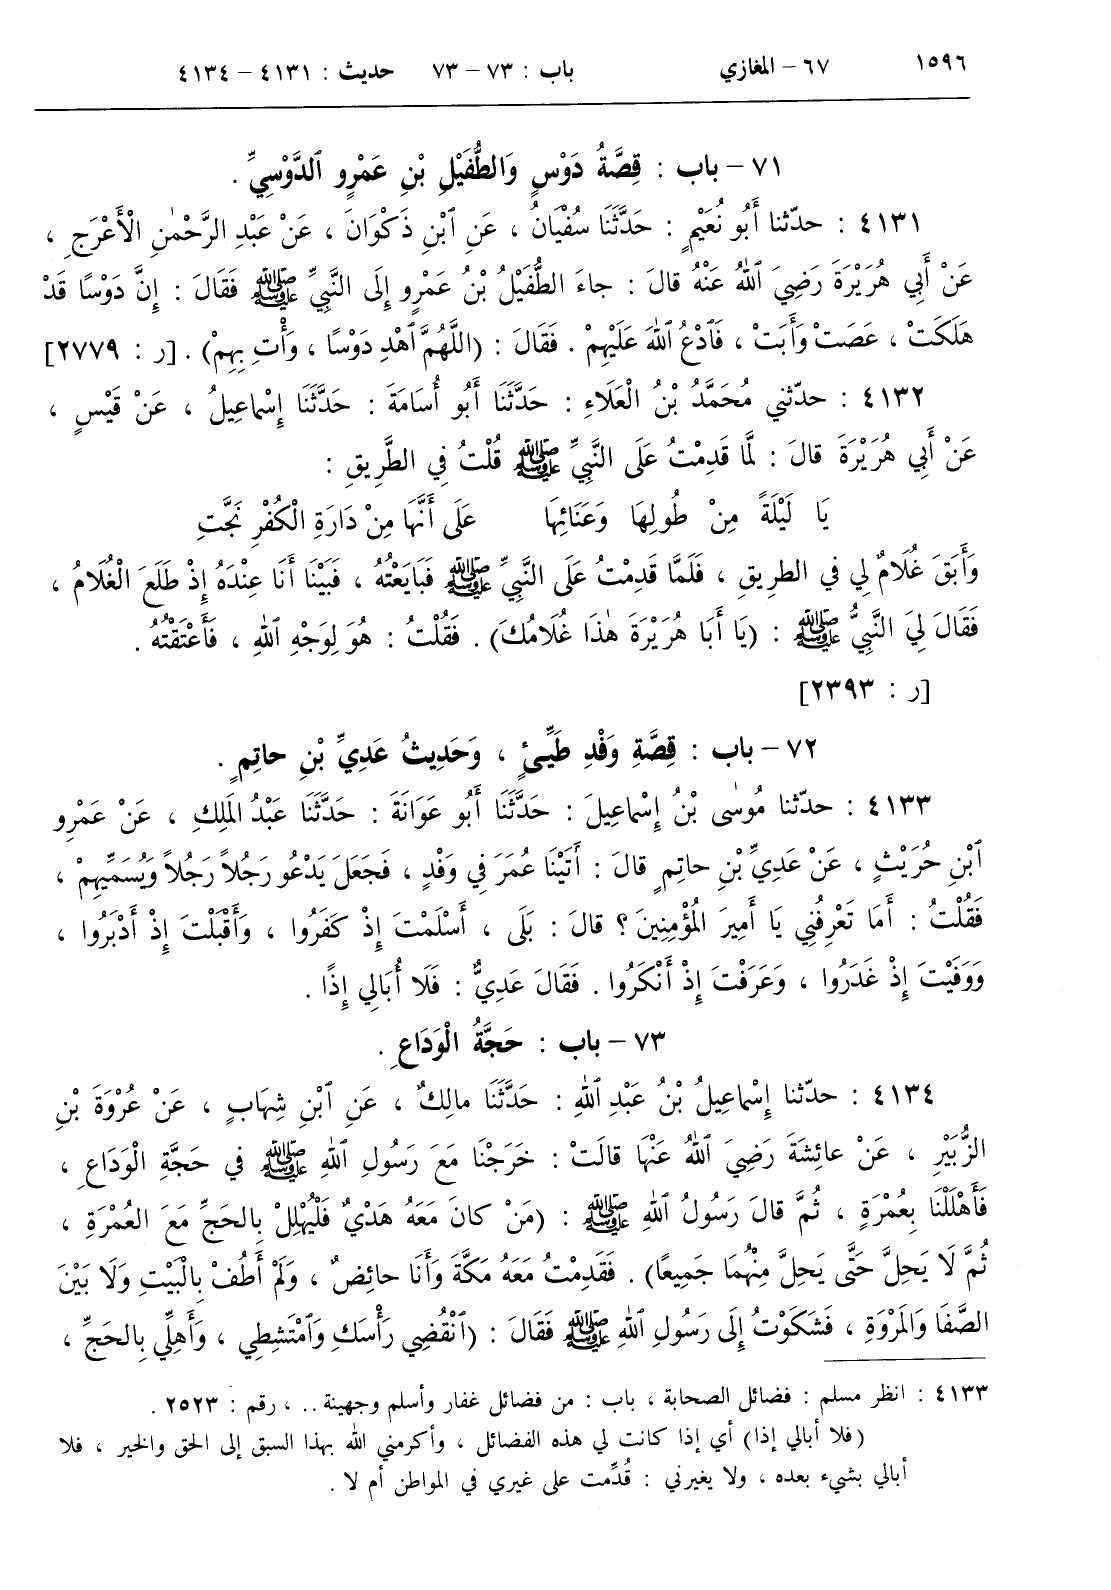 ١٥٩٦ ٦٧ – المغازي باب : ٧٣ – ٧٣ حديث : ٤١٣١ – ٤١٣٤
٧١ – باب : قِصَّةُ دَوْسٍ وَالطُّفَيْلِ بْنِ عَمْرٍو ٱلدَّوْسِيِّ .
٤١٣١ : حدّثنا أَبُو نُعَيْمٍ : حَدَّثَنَا سُفْيَانُ ، عَنِ ٱبْنِ ذَكْوَانَ ، عَنْ عَبْدِ الرَّحْمٰنِ الْأَعْرَجِ ،
عَنْ أَبِي هُرَيْرَةَ رَضِيَ ٱللهُ عَنْهُ قالَ : جاءَ الطُّفَيْلُ بْنُ عَمْرٍو إِلَى النَّبِيِّ ﷺ فَقَالَ : إِنَّ دَوْسًا قَدْ
هَلَكَتْ ، عَصَتْ وَأَبَتْ ، فَٱدْعُ ٱللهَ عَلَيْهِمْ . فَقَالَ : (اللَّهُمَّ ٱهْدِ دَوْسًا ، وَأْتِ بِهِمْ) . [ر : ٢٧٧٩]
٤١٣٢ : حدّثني مُحَمَّدُ بْنُ الْعَلَاءِ : حَدَّثَنَا أَبُو أُسَامَةَ : حَدَّثَنَا إِسْماعِيلُ ، عَنْ قَيْسٍ ،
عَنْ أَبِي هُرَيْرَةَ قالَ : لَمَّا قَدِمْتُ عَلَى النَّبِيِّ ﷺ قُلْتُ فِي الطَّرِيقِ :
يَا لَيْلَةً مِنْ طُولِهَا وَعَنَائِهَا عَلَى أَنَّهَا مِنْ دَارَةِ الْكُفْرِ نَجَّتِ
وَأَبَقَ غُلَامٌ لِي في الطريقِ ، فَلَمَّا قَدِمْتُ عَلَى النَّبِيِّ ﷺ فَبَايَعْتُهُ ، فَبَيْنَا أَنَا عِنْدَهُ إِذْ طَلَعَ الْغُلَامُ ،
فَقَالَ لِيَ النَّبِيُّ ﷺ : (يَا أَبَا هُرَيْرَةَ هٰذَا غُلَامُكَ) . فَقُلْتُ : هُوَ لِوَجْهِ ٱللهِ ، فَأَعْتَقْتُهُ .
[ر : ٢٣٩٣]
٧٢ – باب : قِصَّةِ وَفْدِ طَيِّئٍ ، وَحَدِيثُ عَدِيِّ بْنِ حاتِمٍ .
٤١٣٣ : حدّثنا مُوسٰى بْنُ إِسْماعِيلَ : حَدَّثَنَا أَبُو عَوَانَةَ : حَدَّثَنَا عَبْدُ المَلِكِ ، عَنْ عَمْرِو
ٱبْنِ حُرَيْثٍ ، عَنْ عَدِيِّ بْنِ حاتِمٍ قالَ : أَتَيْنَا عُمَرَ فِي وَفْدٍ ، فَجَعَلَ يَدْعُو رَجُلاً رَجُلاً وَيُسَمِّيهِمْ ،
فَقُلْتُ : أَمَا تَعْرِفُنِي يَا أَمِيرَ المُؤْمِنِينَ ؟ قالَ : بَلَى ، أَسْلَمْتَ إِذْ كَفَرُوا ، وَأَقْبَلْتَ إِذْ أَدْبَرُوا ،
وَوَفَيْتَ إِذْ غَدَرُوا ، وَعَرَفْتَ إِذْ أَنْكَرُوا . فَقَالَ عَدِيٌّ : فَلَا أُبَالِي إِذًا .
٧٣ – باب : حَجَّةُ الْوَدَاعِ .
٤١٣٤ : حدّثنا إِسْماعِيلُ بْنُ عَبْدِ ٱللهِ : حَدَّثَنَا مالِكٌ ، عَنِ ٱبْنِ شِهَابٍ ، عَنْ عُرْوَةَ بْنِ
الزُّبَيْرِ ، عَنْ عائِشَةَ رَضِيَ ٱللهُ عَنْهَا قالَتْ : خَرَجْنَا مَعَ رَسُولِ ٱللهِ ﷺ في حَجَّةِ الْوَدَاعِ ،
فَأَهْلَلْنَا بِعُمْرَةٍ ، ثُمَّ قالَ رَسُولُ ٱللهِ ﷺ : (مَنْ كانَ مَعَهُ هَدْيٌ فَلْيُهْلِلْ بِالحَجِّ مَعَ العُمْرَةِ ،
ثُمَّ لَا يَحِلَّ حَتَّى يَحِلَّ مِنْهُمَا جَمِيعًا) . فَقَدِمْتُ مَعَهُ مَكَّةَ وَأَنَا حائِضٌ ، وَلَمْ أَطُفْ بِالْبَيْتِ وَلَا بَيْنَ
الصَّفَا وَالمَرْوَةِ ، فَشَكَوْتُ إِلَى رَسُولِ ٱللهِ ﷺ فَقَالَ : (ٱنْقُضِي رَأْسَكِ وَٱمْتَشِطِي ، وَأَهِلِّي بِالحَجِّ ،
٤١٣٣ : انظر مسلم : فضائل الصحابة ، باب : من فضائل غفار وأسلم وجهينة .. ، رقم : ٢٥٢٣ .
(فلا أبالي إذا) أي إذا كانت لي هذه الفضائل ، وأكرمني الله بهذا السبق إلى الحق والخير ، فلا
أبالي بشيء بعده ، ولا يغيرني : قُدِّمت على غيري في المواطن أم لا .